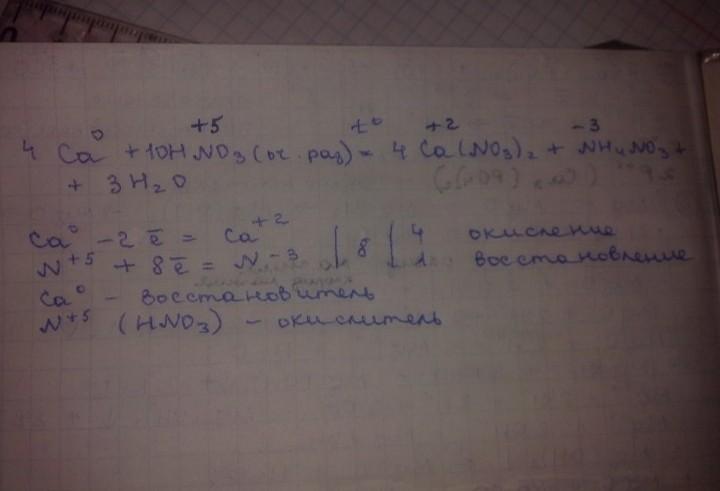 +5 t° +2 -3
4 Ca⁰ + 10HNO₃ (оч. раз) = 4 Ca(NO₃)₂ + NH₄NO₃ +
+ 3H₂O
Ca⁰ - 2ē = Ca⁺² | | 4 окисление
N⁺⁵ + 8ē = N⁻³ | 8 | 1 восстановление
Ca⁰ - восстановитель
N⁺⁵ (HNO₃) - окислитель